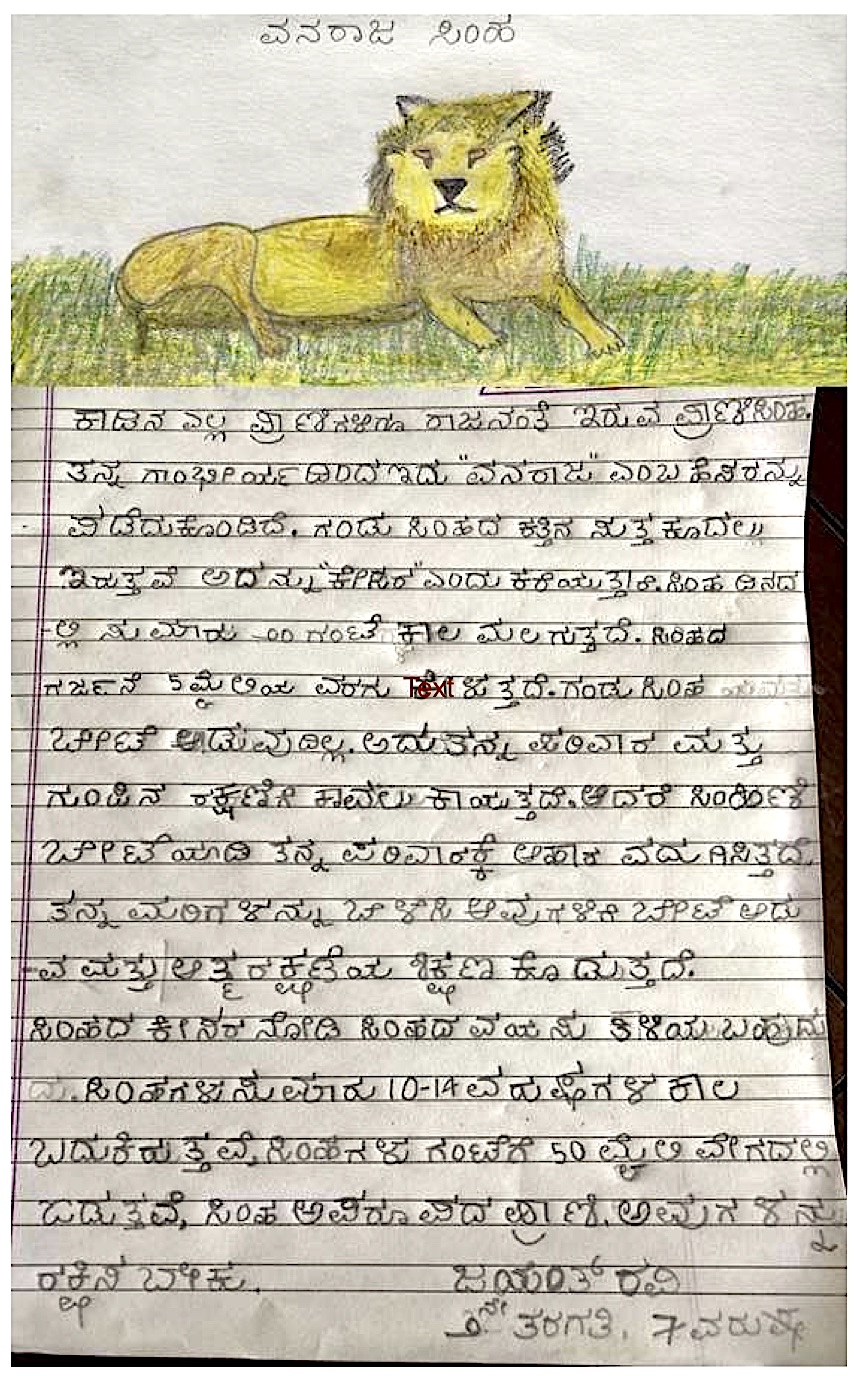 ವನರಾಜ ಸಿಂಹ
ಕಾಡಿನ ಎಲ್ಲ ಪ್ರಾಣಿಗಳಿಗೂ ರಾಜನಂತೆ ಇರುವ ಪ್ರಾಣಿ ಸಿಂಹ.
ತನ್ನ ಗಾಂಭೀರ್ಯದಿಂದ ಇದು "ವನರಾಜ" ಎಂಬ ಹೆಸರನ್ನು
ಪಡೆದುಕೊಂಡಿದೆ. ಗಂಡು ಸಿಂಹದ ಕತ್ತಿನ ಸುತ್ತ ಕೂದಲು
ಇರುತ್ತವೆ ಅದನ್ನು "ಕೇಸರ" ಎಂದು ಕರೆಯುತ್ತಾರೆ. ಸಿಂಹ ದಿನದ
-ಲ್ಲಿ ಸುಮಾರು ಗಂಟೆ ಕಾಲ ಮಲಗುತ್ತದೆ. ಸಿಂಹದ
ಗರ್ಜನೆ 5 ಮೈಲಿಯ ವರಗು Text ಳುತ್ತದೆ. ಗಂಡು ಸಿಂಹ
ಬೇಟೆ ಆಡುವುದಿಲ್ಲ. ಅದು ತನ್ನ ಪರಿವಾರ ಮತ್ತು
ಗುಂಪಿನ ರಕ್ಷಣೆಗೆ ಕಾವಲು ಕಾಯುತ್ತದೆ. ಆದರೆ ಸಿಂಹಿಣಿ
ಬೇಟೆಯಾಡಿ ತನ್ನ ಪರಿವಾರಕ್ಕೆ ಆಹಾರ ವದುಗಿಸಿತ್ತದೆ.
ತನ್ನ ಮರಿಗಳನ್ನು ಬೆಳೆಸಿ ಅವುಗಳಿಗೆ ಬೇಟೆ ಆಡು
-ವ ಮತ್ತು ಆತ್ಮರಕ್ಷಣೆಯ ಶಿಕ್ಷಣ ಕೊಡುತ್ತದೆ.
ಸಿಂಹದ ಕೇಸರ ನೋಡಿ ಸಿಂಹದ ವಯಸು ತಿಳಿಯಬಹುದು
ಸಿಂಹಗಳು ಸುಮಾರು 10-14 ವರುಷಗಳ ಕಾಲ
ಬದುಕಿರುತ್ತವೆ, ಸಿಂಹಗಳು ಗಂಟೆಗೆ 50 ಮೈಲಿ ವೇಗದಲ್ಲಿ
ಓಡುತ್ತವೆ, ಸಿಂಹ ಅಪರೂಪದ ಪ್ರಾಣಿ. ಅವುಗಳನ್ನು
ರಕ್ಷಿಸಬೇಕು. ಜಯಂತ್ ರವಿ
ನೇ ತರಗತಿ, 7 ವರುಷ